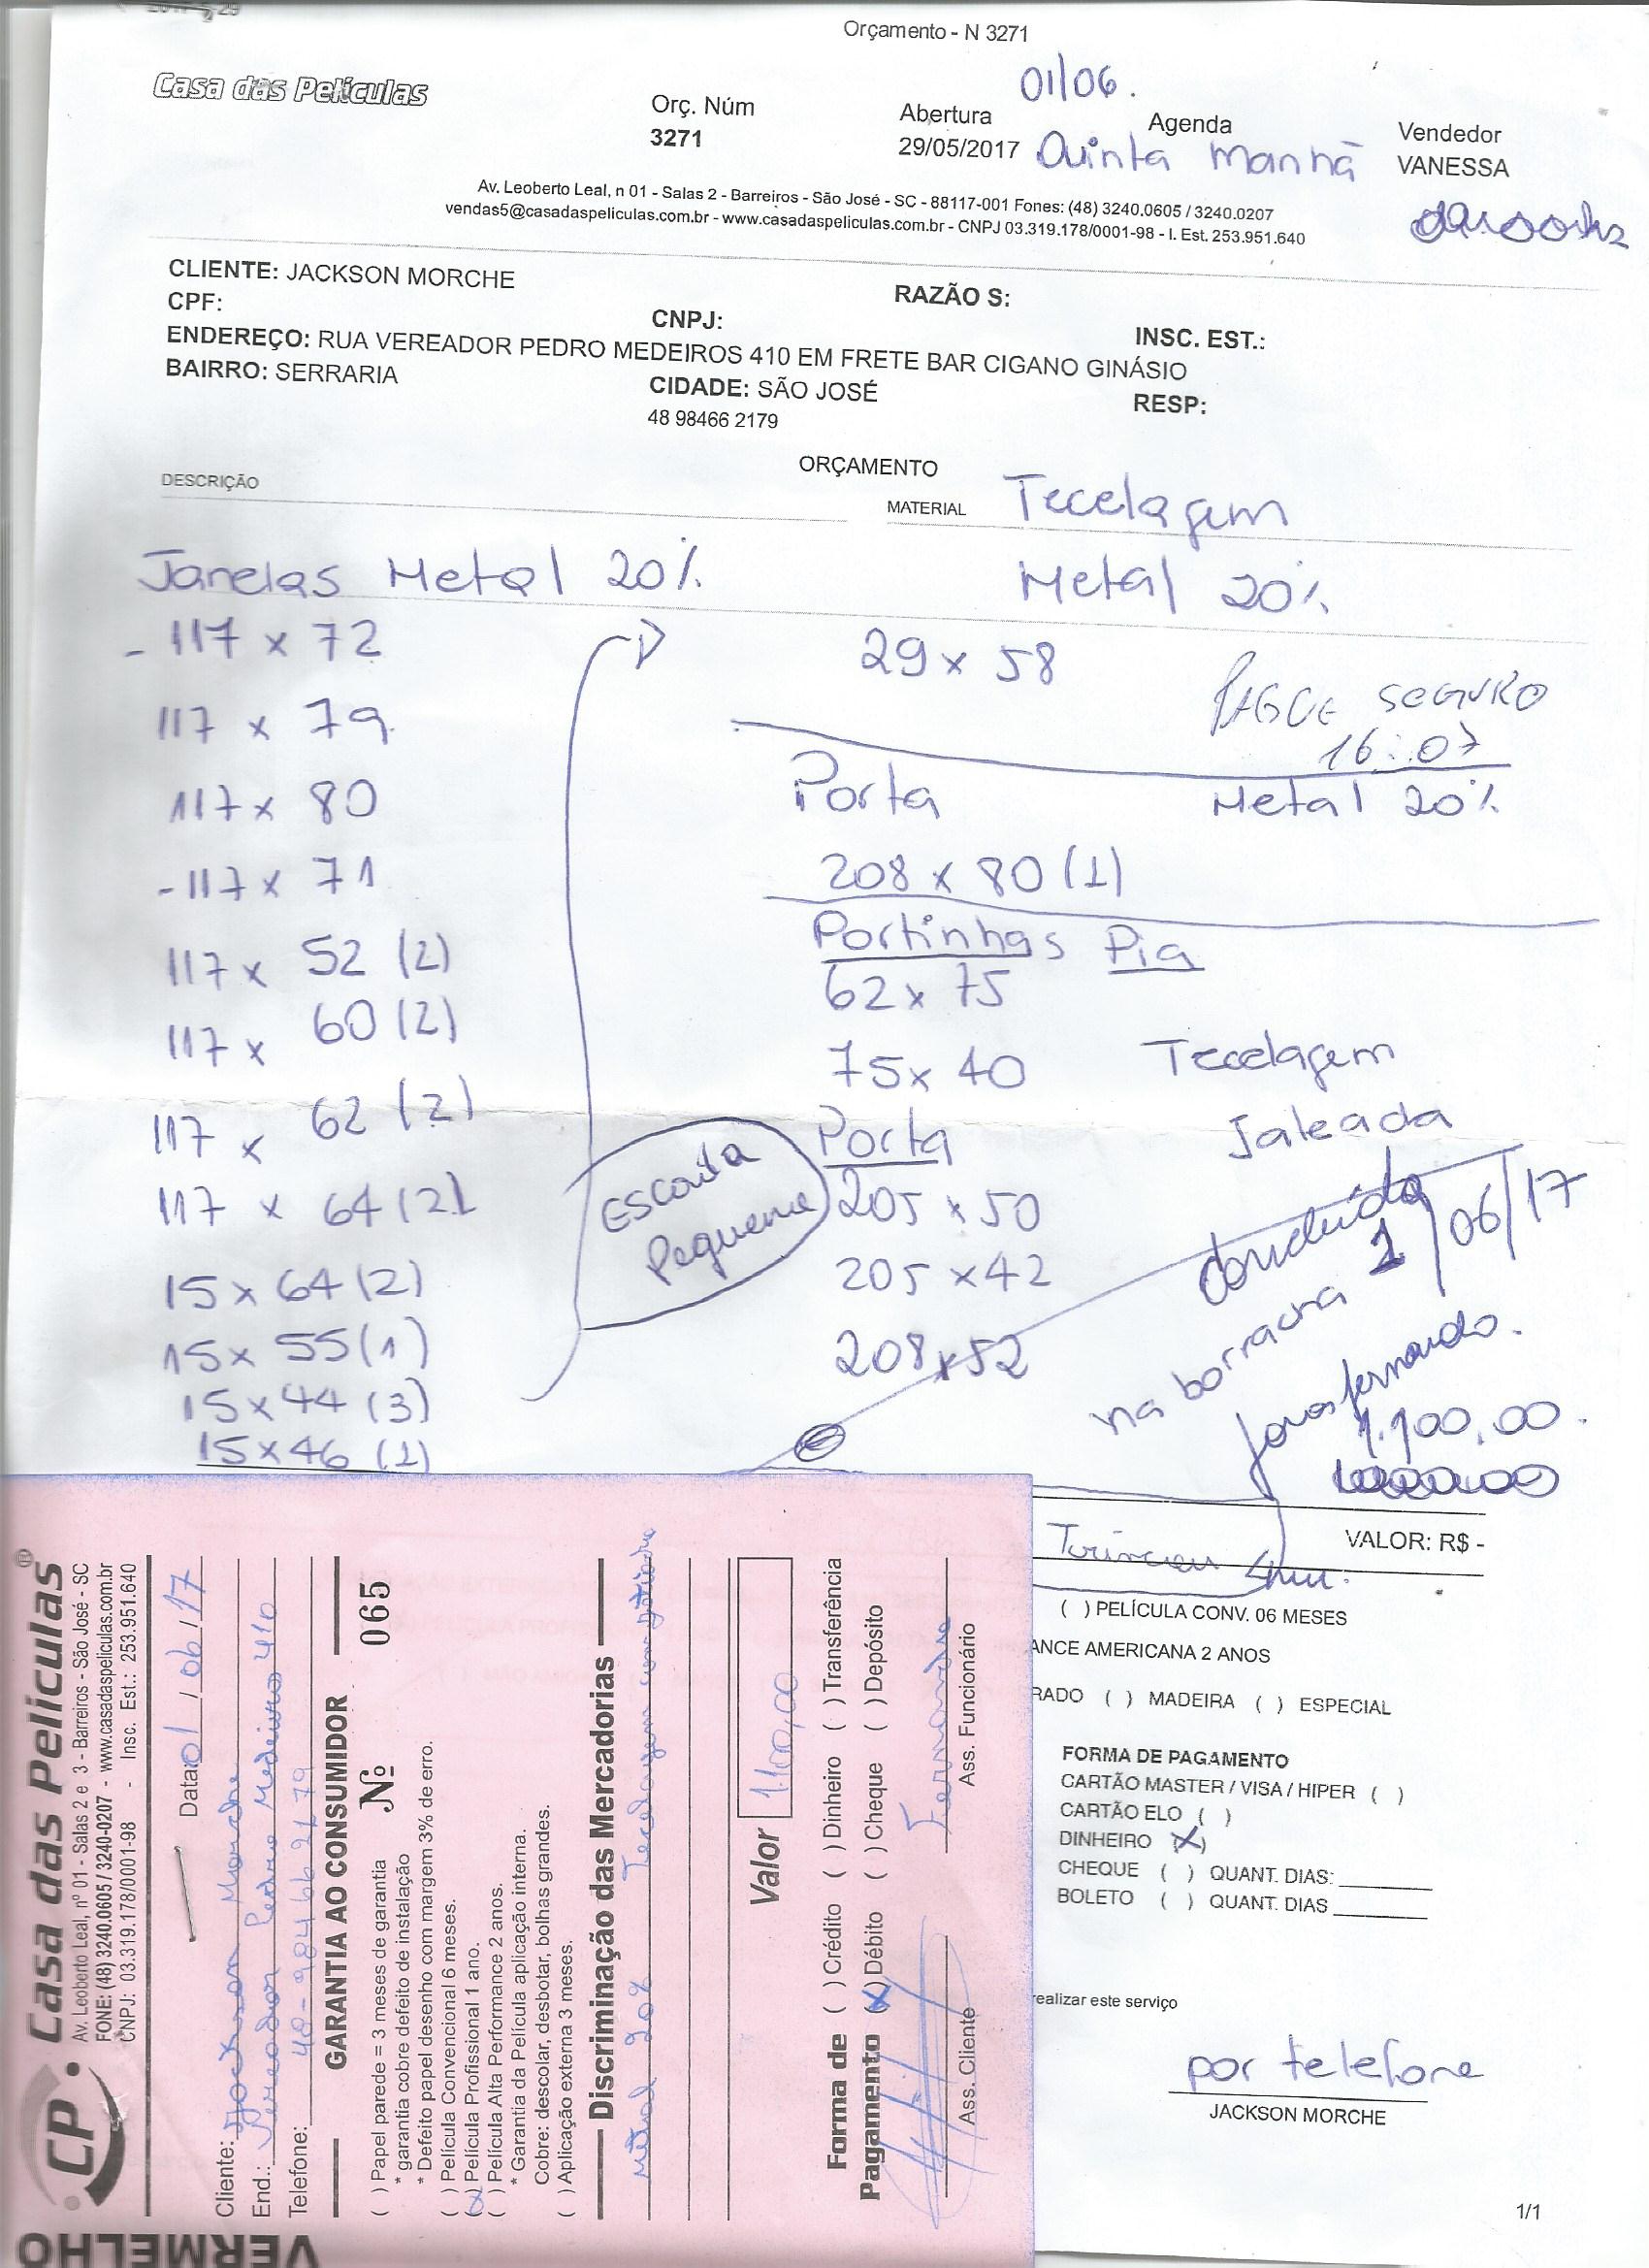 Orçamento - N 3271
Casa das Películas
Orç. Núm
3271
Abertura
29/05/2017
01/06.
Agenda
Quinta Manhã
Vendedor
VANESSA
Av. Leoberto Leal, n 01 - Salas 2 - Barreiros - São José - SC - 88117-001 Fones: (48) 3240.0605 / 3240.0207
vendas5@casadaspeliculas.com.br - www.casadaspeliculas.com.br - CNPJ 03.319.178/0001-98 - I. Est. 253.951.640
CLIENTE: JACKSON MORCHE
RAZÃO S:
CPF:
CNPJ:
INSC. EST.:
ENDEREÇO: RUA VEREADOR PEDRO MEDEIROS 410 EM FRETE BAR CIGANO GINÁSIO
BAIRRO: SERRARIA
CIDADE: SÃO JOSÉ
RESP:
48 98466 2179
ORÇAMENTO
DESCRIÇÃO
MATERIAL Tecelagem
Janelas Metal 20%
Metal 20%
- 117 x 72
117 x 79
117 x 80
- 117 x 71
117 x 52 (2)
117 x 60 (2)
117 x 62 (2)
117 x 64 (2)
15 x 64 (2)
15 x 55 (1)
15 x 44 (3)
15 x 46 (1)
29 x 58
PAGUE SEGURO
16:07
Porta Metal 20%
208 x 80 (1)
Portinhas Pia
62 x 75
75 x 40
Tecelagem
Jateada
Porta
205 x 50
205 x 42
208 x 52
Escovita
Pequena
Concluído
1/06/17
na borracha
Fernando.
1.100,00.
VALOR: R$ -
( ) PELÍCULA CONV. 06 MESES
ANCE AMERICANA 2 ANOS
RADO ( ) MADEIRA ( ) ESPECIAL
FORMA DE PAGAMENTO
CARTÃO MASTER / VISA / HIPER ( )
CARTÃO ELO ( )
DINHEIRO (X)
CHEQUE ( ) QUANT. DIAS:
BOLETO ( ) QUANT. DIAS
realizar este serviço
por telefone
JACKSON MORCHE
1/1
CP
Casa das Películas®
Av. Leoberto Leal, nº 01 - Salas 2 e 3 - Barreiros - São José - SC
FONE: (48) 3240.0605 / 3240-0207 - www.casadaspeliculas.com.br
CNPJ: 03.319.178/0001-98 - Insc. Est.: 253.951.640
Data 01/06/17
Cliente: Jackson Morche
End.: Vereador Pedro Medeiros 410
Telefone: 48-98466 2179
GARANTIA AO CONSUMIDOR Nº 065
( ) Papel parede = 3 meses de garantia
* garantia cobre defeito de instalação
* Defeito papel desenho com margem 3% de erro.
( ) Película Convencional 6 meses.
(x) Película Profissional 1 ano.
( ) Película Alta Performance 2 anos.
* Garantia da Película aplicação interna.
Cobre: descolar, desbotar, bolhas grandes.
( ) Aplicação externa 3 meses.
Discriminação das Mercadorias
Metal 20% Tecelagem
Valor 1.100,00
Forma de Pagamento
( ) Crédito ( ) Dinheiro ( ) Transferência
(x) Débito ( ) Cheque ( ) Depósito
Fernando
Ass. Cliente
Ass. Funcionário
VERMELHO